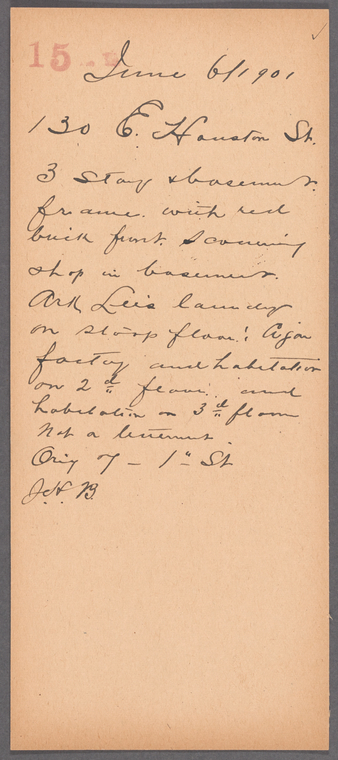 15
June 6/1901
130 E. Houston St.
3 story & basement.
frame. with red
brick front. Scouring
shop in basement.
Ark Lee's laundry
on stoop floor. Cigar
factory and habitation
on 2d floor. and
habitation on 3d floor
Not a tenement.
Orig 7 - 1st St
J.H.B.